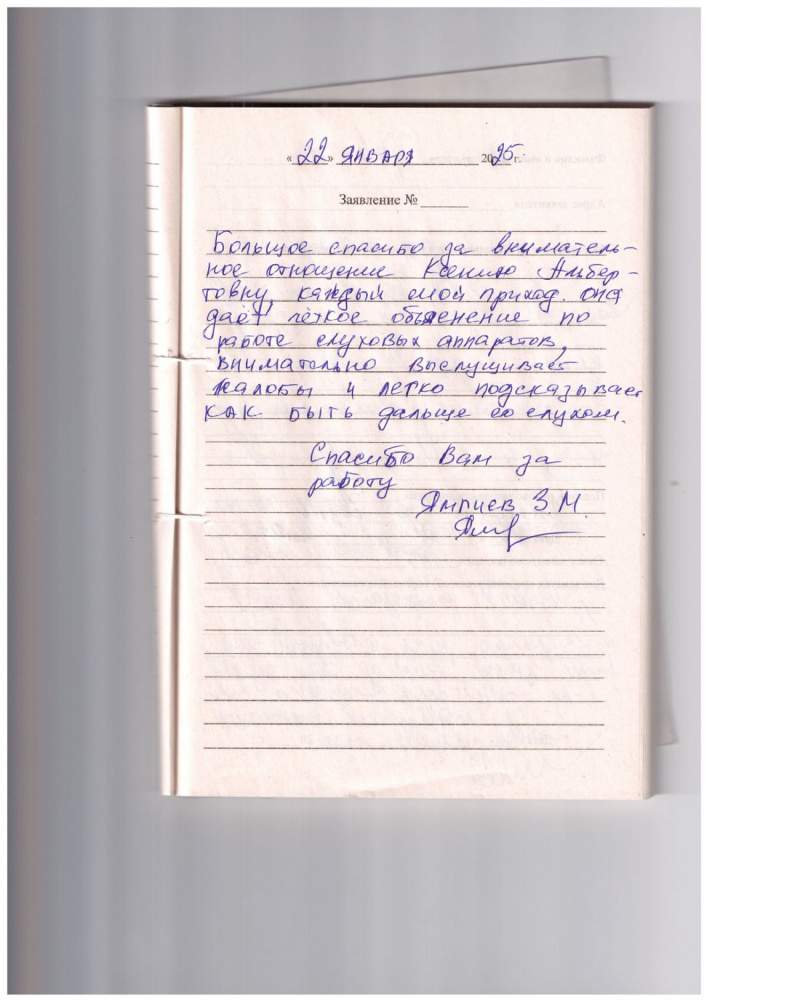 « 22 » ЯНВАРЯ 2025 г.
Заявление № ______
Большое спасибо за вниматель-
ное отношение Ксению Альбер-
товну, каждый мой приход. она
даёт лёгкое объяснение по
работе слуховых аппаратов,
внимательно выслушивает
жалобы и легко подсказывает
как быть дальше со слухом.
Спасибо Вам за
работу
З.М.